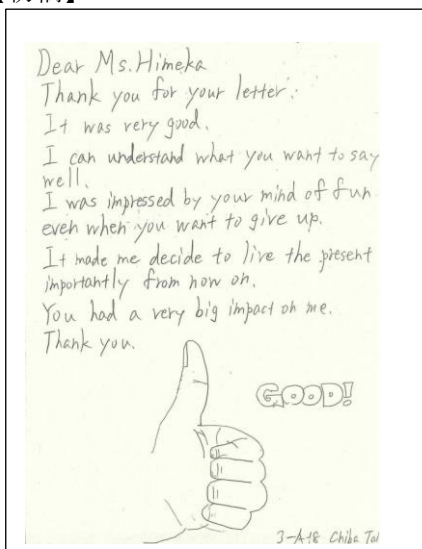 Dear Ms.Himeka
Thank you for your letter.
It was very good.
I can understand what you want to say
well.
I was impressed by your mind of fun
even when you want to give up.
It made me decide to live the present
importantly from now on.
You had a very big impact on me.
Thank you.
GOOD!
Chiba